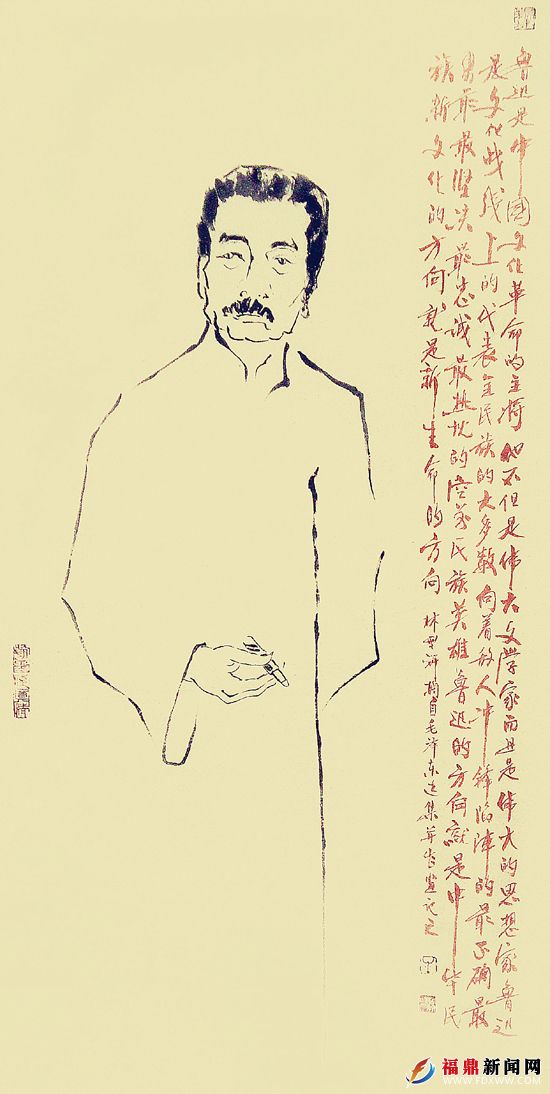 鲁迅是中國文化革命的主将他不但是伟大文学家而且是伟大的思想家鲁迅
是文化战线上的代表全民族的大多数向着敌人冲锋陷阵的最正确最
勇敢最坚决最忠诚最热忱的空前民族英雄鲁迅的方向就是中华民
族新文化的方向就是新生命的方向 林 摘自毛泽东选集并 记之
福鼎新闻网
WWW.FDXWW.COM